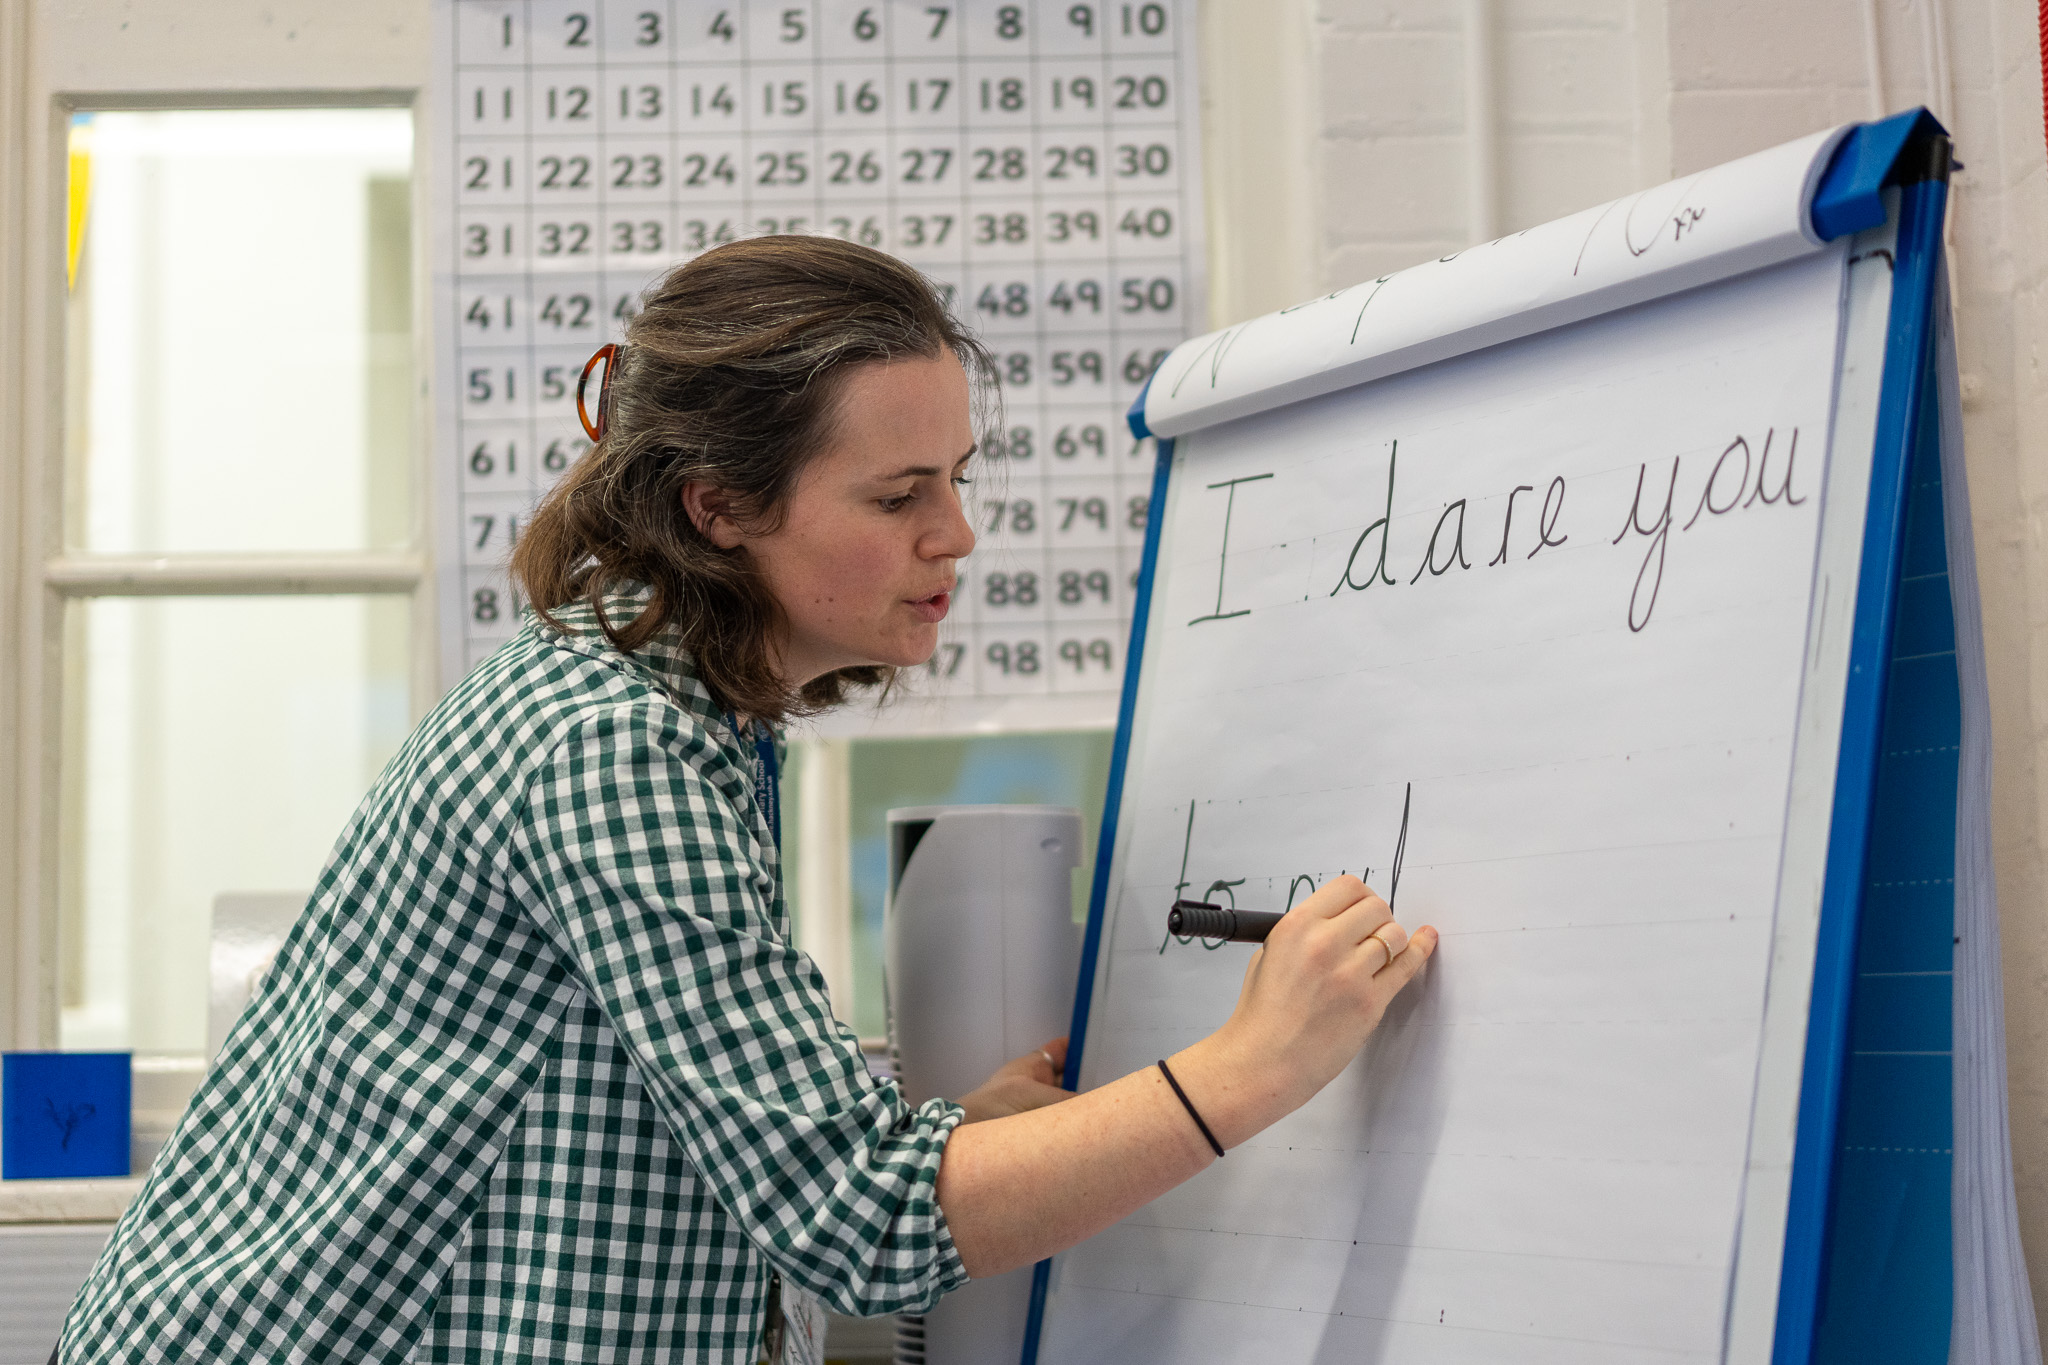 1 2 3 4 5 6 7 8 9 10
11 12 13 14 15 16 17 18 19 20
21 22 23 24 25 26 27 28 29 30
31 32 33 34 35 36 37 38 39 40
41 42 48 49 50
51 52 59
61 68 69
71 78 79
81 88 89
98 99
I dare you
to
School